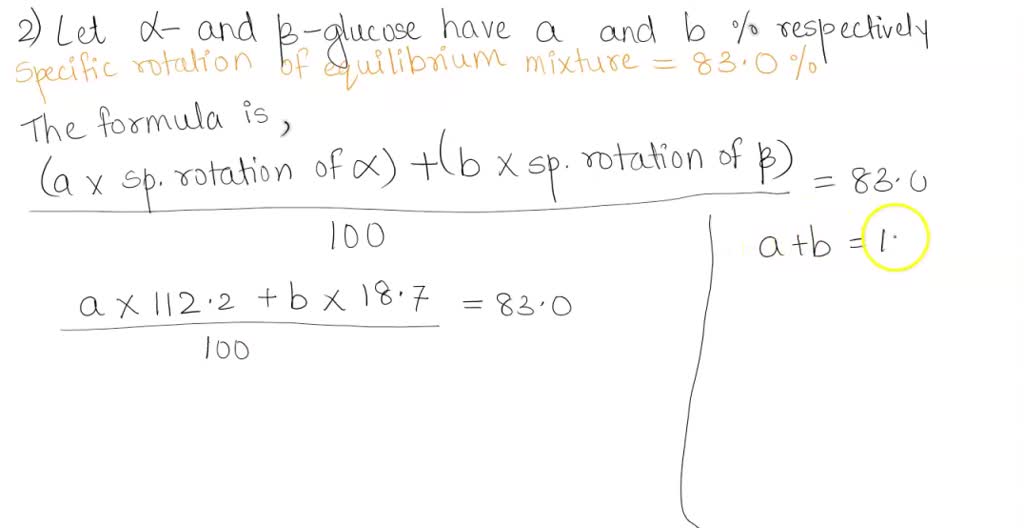 2) Let α- and β-glucose have a and b % respectively
Specific rotation of equilibrium mixture = 83.0 %
The formula is,
(a x sp. rotation of α) + (b x sp. rotation of β) = 83.0
100
a + b = 1.
a x 112.2 + b x 18.7 = 83.0
100